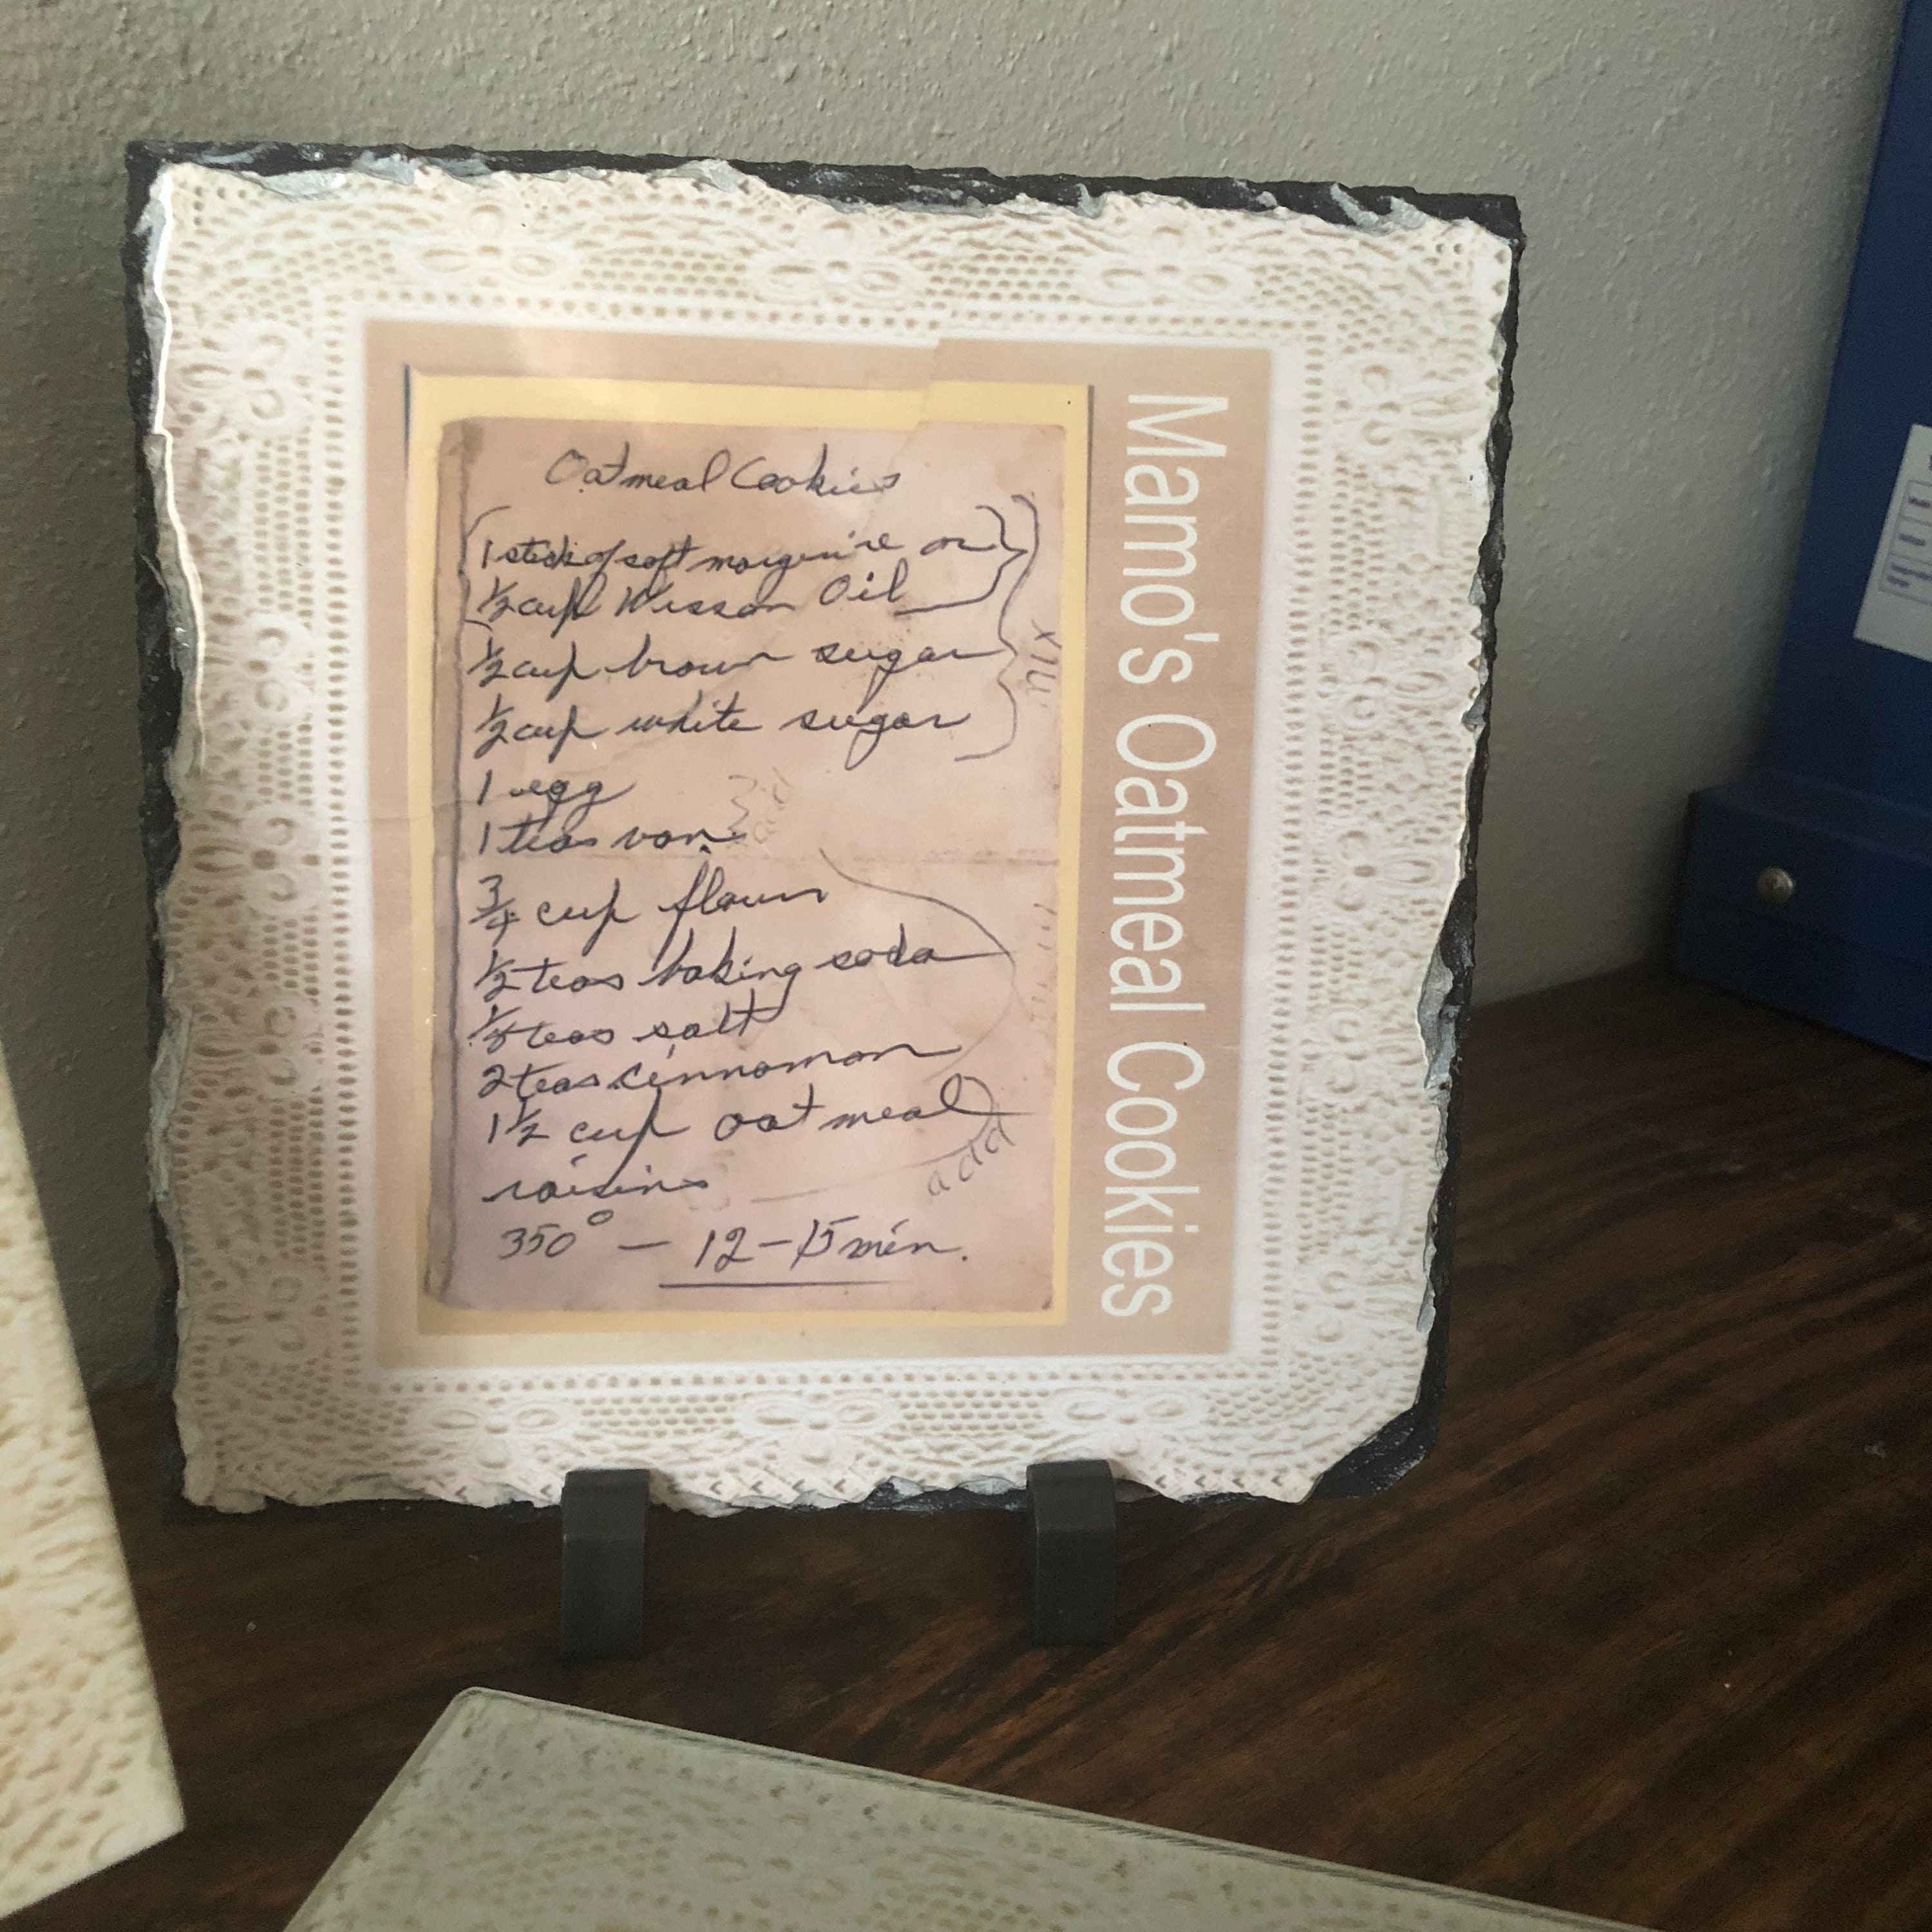 Oatmeal Cookies
1 stick of soft margarine or
1/2 cup Wesson Oil
1/2 cup brown sugar
1/2 cup white sugar
mix
1 egg
1 teas van.
add
3/4 cup flour
1/2 teas baking soda
teas salt
2 teas cinnamon
1 1/2 cup oatmeal
raisins
add
350° — 12-15 min.
Mamo's Oatmeal Cookies